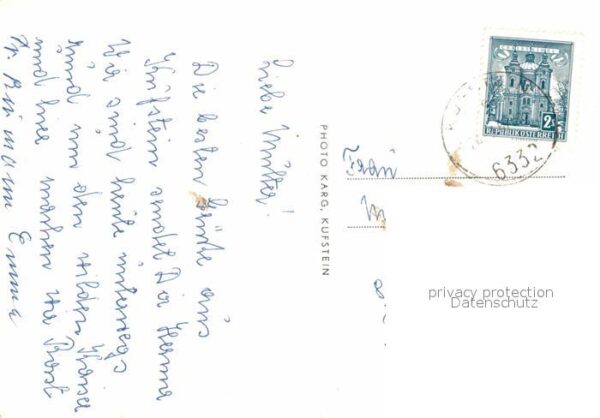 Liebe Mutter!
Die besten Grüße aus
Kufstein sendet Dir Hanna
Wir sind heute unterwegs
rund um den wilden Kaiser
und hier machen wir Rast
Emma
PHOTO KARG, KUFSTEIN
Frau
M
CHRISTKINDL
2S
REPUBLIK ÖSTERREICH
6332
privacy protection
Datenschutz